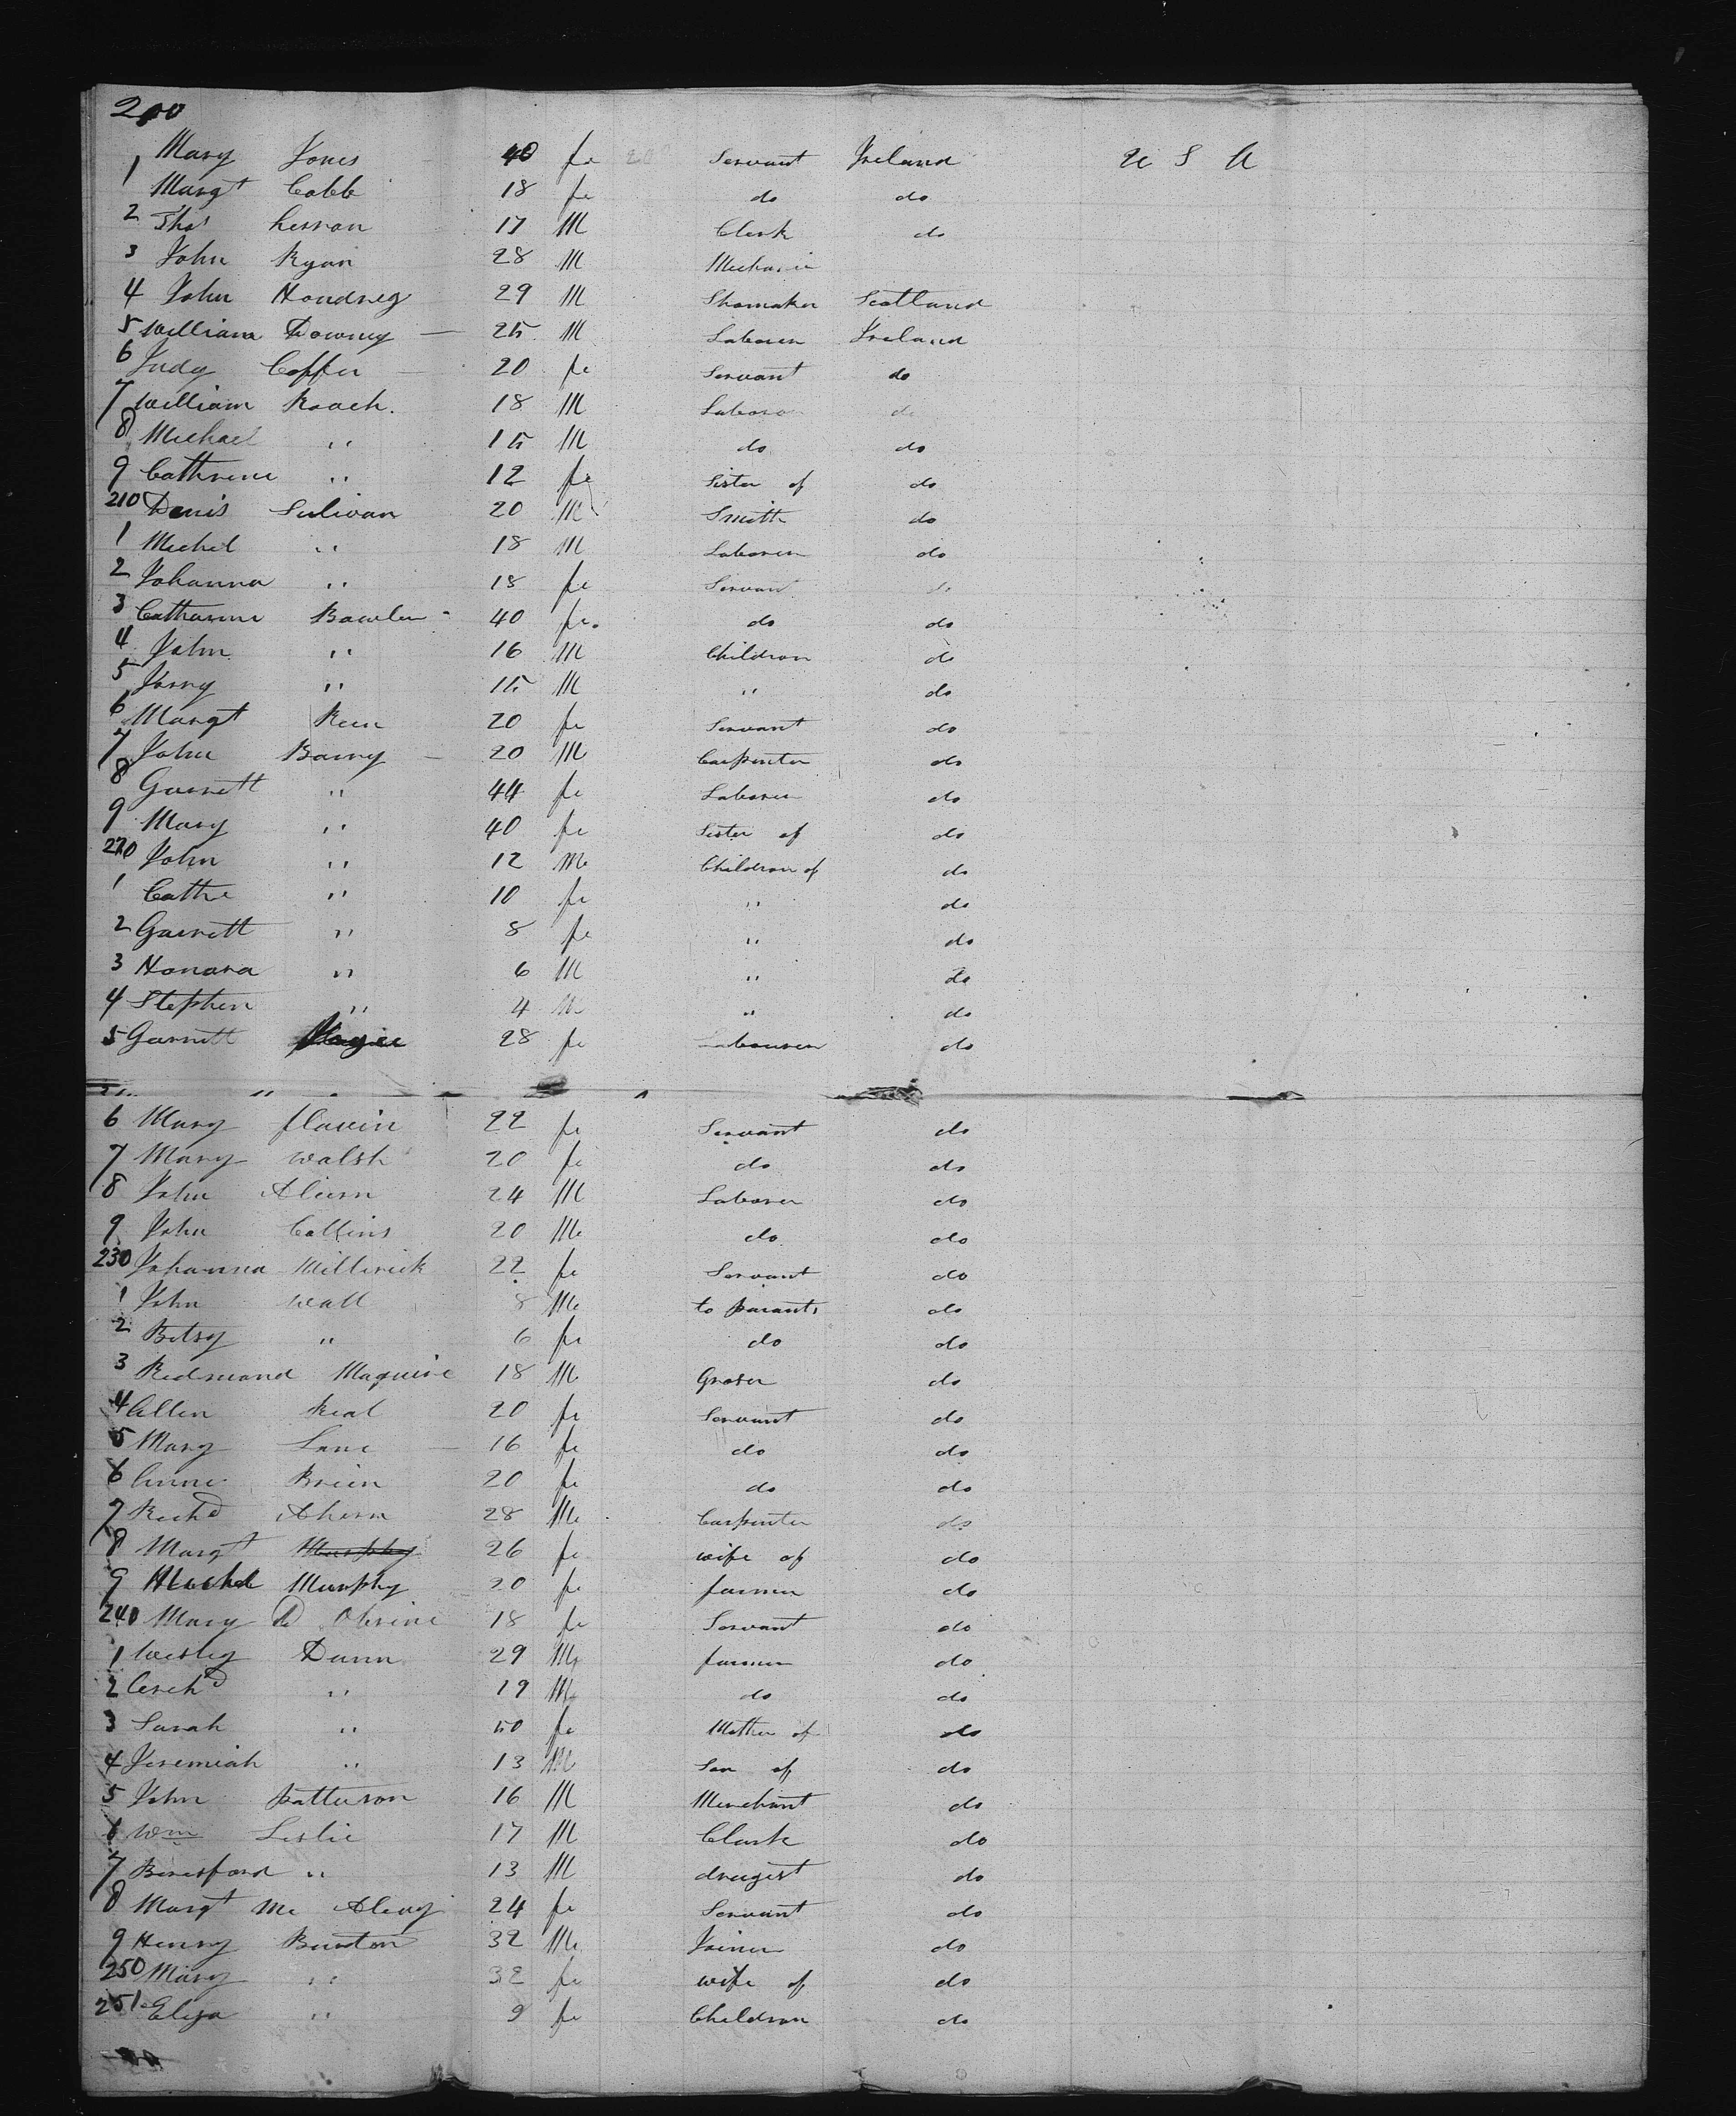 200
Mary Jones 40 fe Servant Ireland U S A
1 Margt Cobb 18 fe do do
2 Thos 17 M Clerk do
3 John Ryan 28 M Mechanic
4 John 29 M Shomaker Scotland
5 William Downy 25 M Laborer Ireland
6 Judy 20 fe Servant do
7 William Roach. 18 M Laborer do
8 Michael " 15 M do do
9 Cathrine " 12 fe Sister of do
210 Denis Sulivan 20 M Smith do
1 Michel " 18 M Laborer do
2 Johanna " 18 fe Servant do
3 Catharine 40 fe. do do
4 John " 16 M Children do
5 " 15 M " do
6 Margt 20 fe Servant do
7 John Barry 20 M Carpenter do
8 Garrett " 44 fe Laborer do
9 Mary " 40 fe Sister of do
220 John " 12 M Children of do
1 Cathe " 10 fe " do
2 Garrett " 8 fe " do
3 Honora " 6 M " do
4 Stephen " 4 M " do
5 Garrett 28 fe Labourer do
6 Mary flavin 22 fe Servant do
7 Mary Walsh 20 fe do do
8 John Ahern 24 M Laborer do
9 John Collins 20 M do do
230 Johanna Millerick 22 fe Servant do
1 John Wall 8 M to parants do
2 Betsy " 6 fe do do
3 Redmond Maguire 18 M Groser do
4 Ellen Keal 20 fe Servant do
5 Mary Lane 16 fe do do
6 Anne Brien 20 fe do do
7 Richd Ahern 28 M Carpenter do
8 Margt Murphy 26 fe wife of do
9 Murphy 20 fe farmer do
240 Mary 18 fe Servant do
1 Wesley Dunn 29 M farmer do
2 Archd " 19 M do do
3 Sarah " 50 fe Mother of do
4 Jeremiah " 13 M Son of do
5 John Patterson 16 M Merchant do
6 Wm Leslie 17 M Clark do
7 Beresford " 13 M drugist do
8 Margt Mc Alevy 24 fe Servant do
9 Henry Burton 32 M Joiner do
250 Mary " 32 fe wife of do
251 Eliza " 9 fe Children do